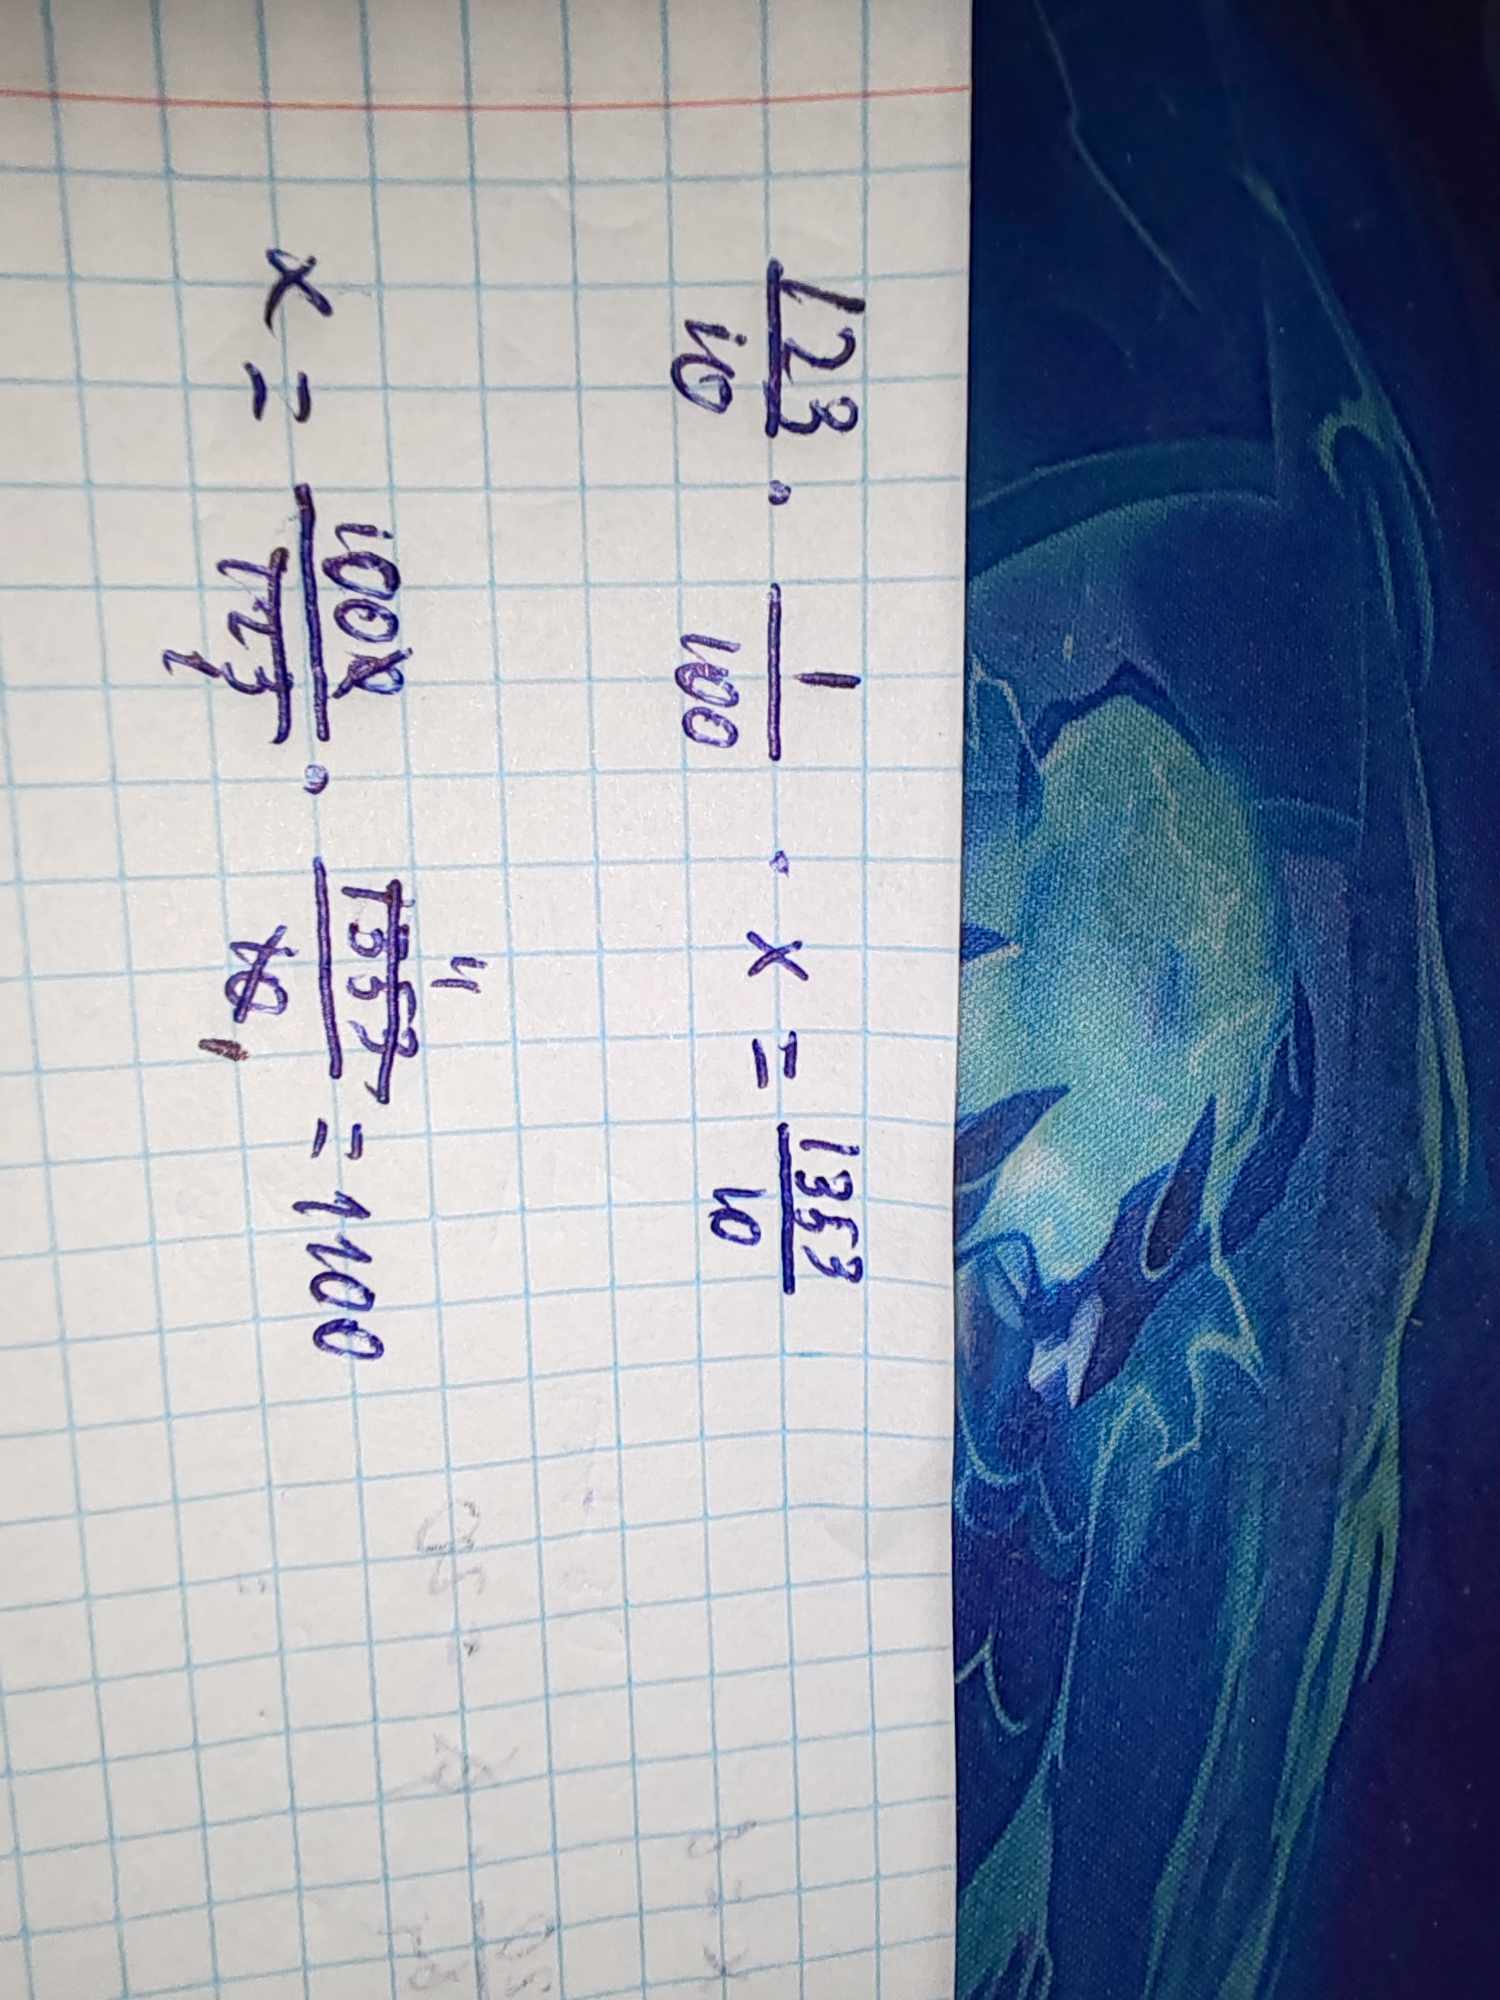 123/10 · 1/100 · x = 1353/10
x = 1000/123 1 · 1353 11/10 1 = 1100